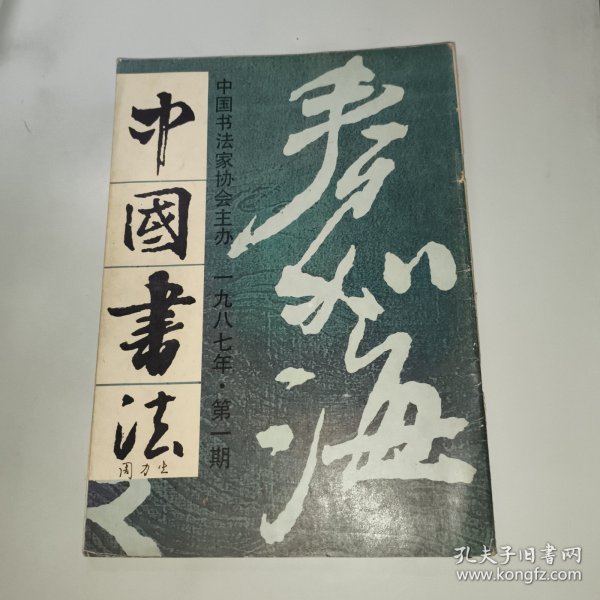 中國書法
周力生
中国书法家协会主办 一九八七年·第一期
春如海
孔夫子旧书网
www.kongfz.com